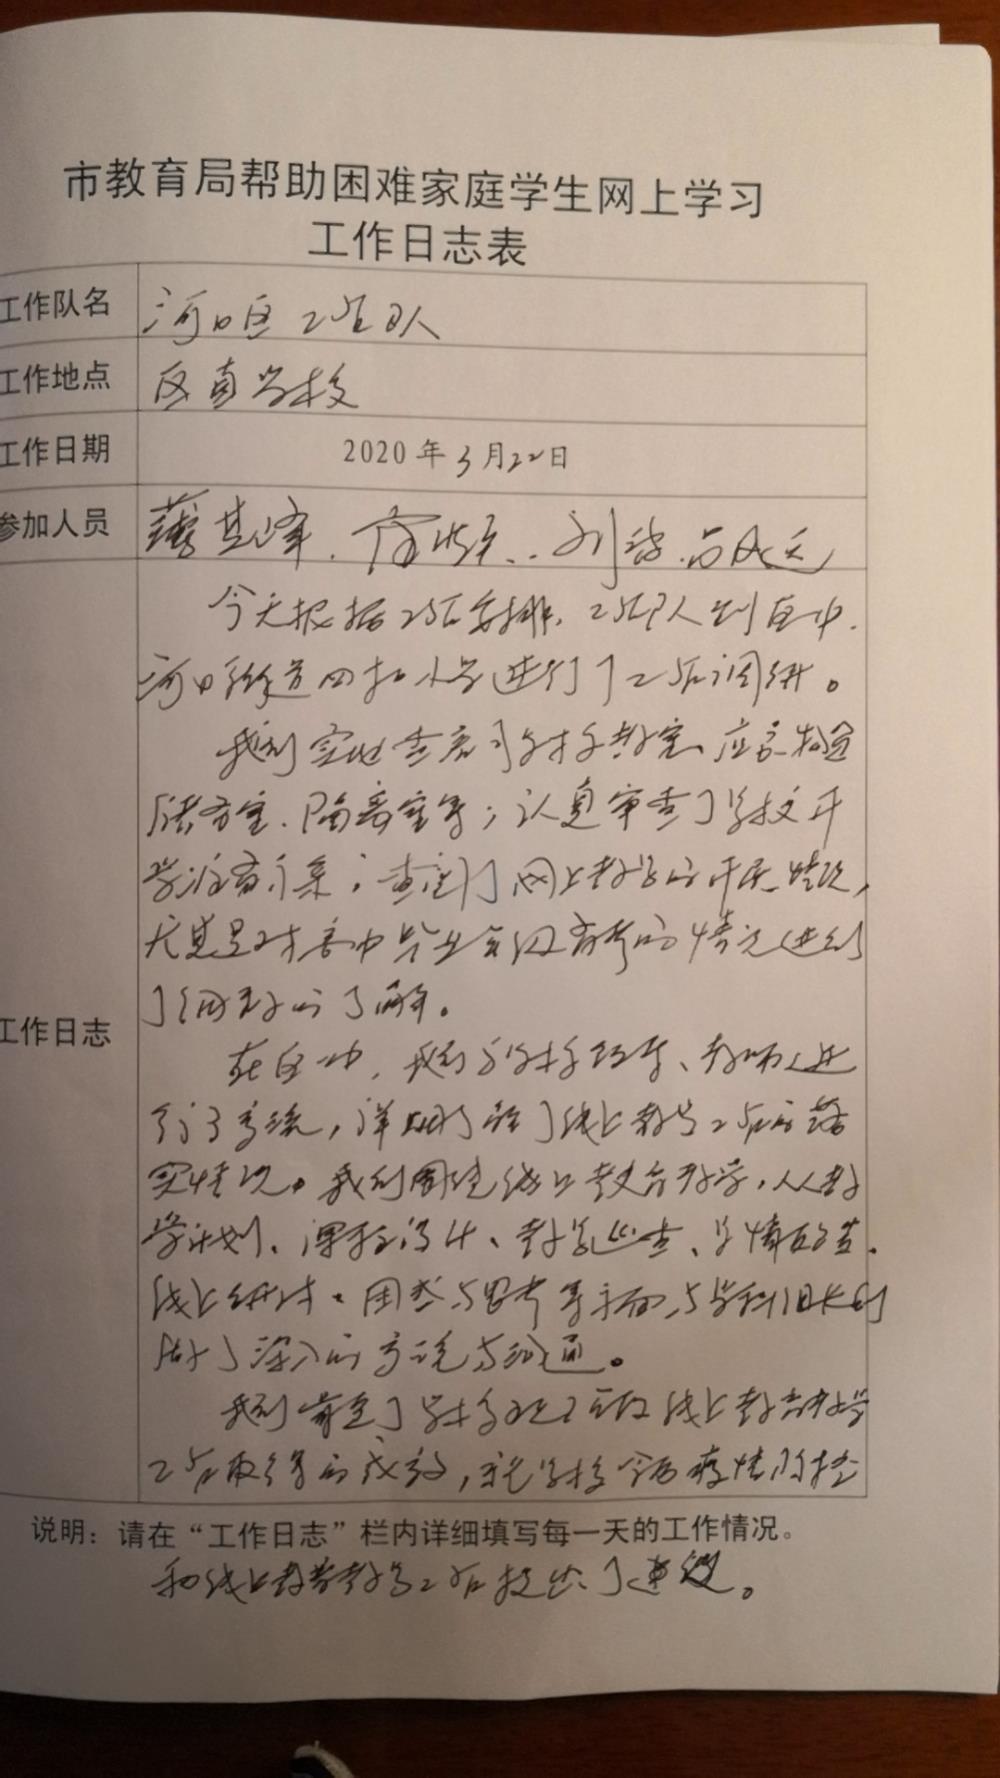 市教育局帮助困难家庭学生网上学习
工作日志表
工作队名 河口区工作队
工作地点 区直学校
工作日期 2020年3月22日
参加人员 薄其峰、刘
今天根据工作安排，工作队到区中、
河口街道四扣小学进行了工作调研。
我们实地查看了学校教室、应急物资
储备室、隔离室等；认真审查了学校开
学准备方案；查问了网上教学的开展情况，
尤其是对高中毕业年级备考的情况进行
了细致的了解。
在区中，我们与学校领导、教师进
行了交流，详细了解了线上教学工作的落
实情况。我们围绕线上教育教学，从教
学计划、课程设计、教学巡查、学情反馈、
线上研讨、困惑与思考等方面，与学科组长们
做了深入的交流与沟通。
我们肯定了学校现阶段线上教育教学
工作取得的成效，就学校今后疫情防控
工作日志
说明：请在“工作日志”栏内详细填写每一天的工作情况。
和线上教育教学工作提出了建议。